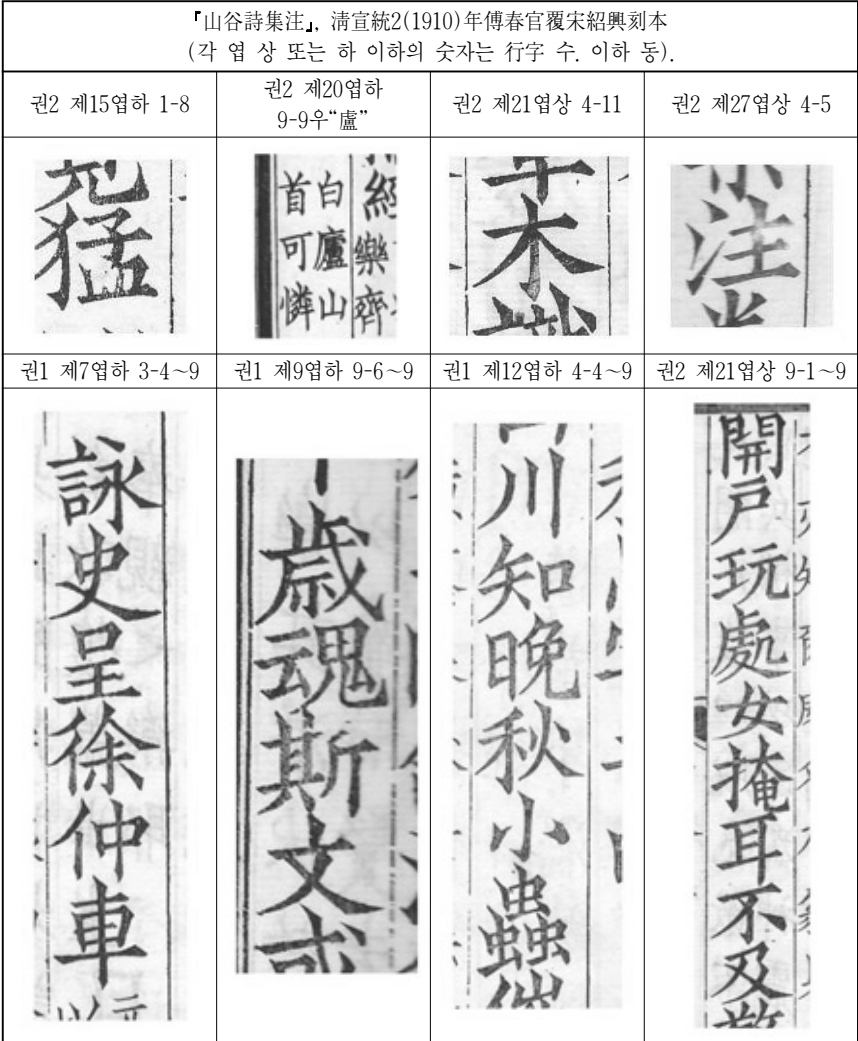 『山谷詩集注』, 淸宣統2(1910)年傅春官覆宋紹興刻本
(각 엽 상 또는 하 이하의 숫자는 行字 수. 이하 동).
권2 제15엽하 1-8
권2 제20엽하
9-9우“盧”
권2 제21엽상 4-11
권2 제27엽상 4-5
猛
經樂齊
白廬山
首可憐
木
注
권1 제7엽하 3-4～9
권1 제9엽하 9-6～9
권1 제12엽하 4-4～9
권2 제21엽상 9-1～9
詠史呈徐仲車
歳魂斯文
川知晚秋小蟲
開戶玩處女掩耳不及